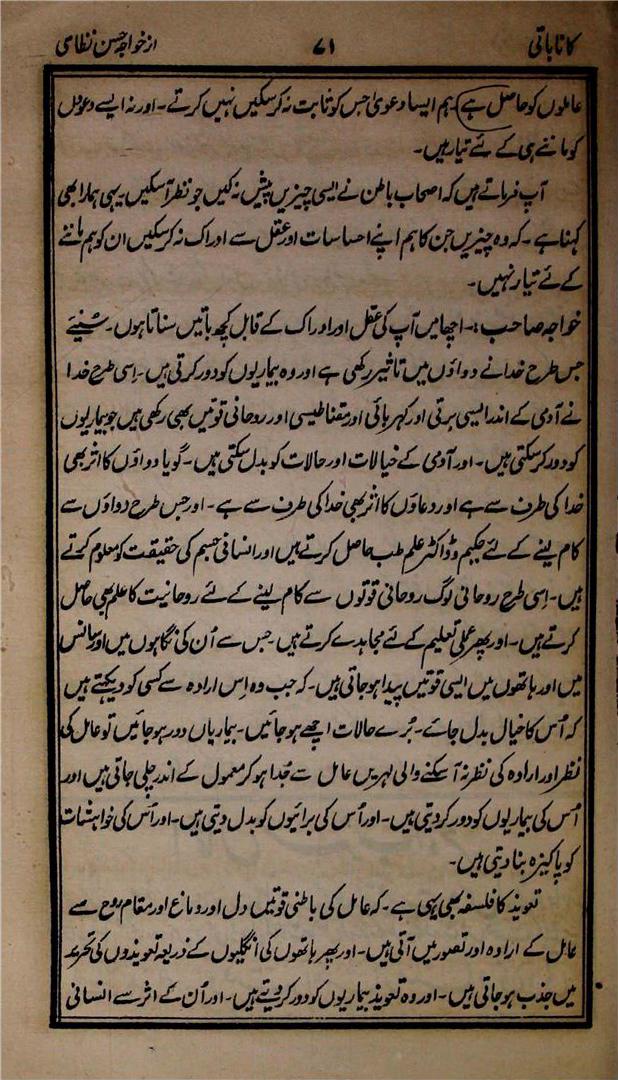 کانا باتی ۷۱ از خواجہ حسن نظامی
عاملوں کو حاصل ہے) ہم ایسا دعویٰ جس کو ثابت نہ کر سکیں نہیں کرتے۔ اور نہ ایسے دعوٰں
کو ماننے ہی کے لئے تیار ہیں۔
آپ فرماتے ہیں کہ اصحاب باطن نے ایسی چیزیں پیش نہ کیں جو نظر آسکیں یہی ہمارا بھی
کہنا ہے۔ کہ وہ چیزیں جن کا ہم اپنے احساسات اور عقل سے ادراک نہ کر سکیں ان کو ہم ماننے
کے لئے تیار نہیں۔
خواجہ صاحب:۔ اچھا میں آپ کی عقل اور ادراک کے قابل کچھ باتیں سناتا ہوں۔ سُنیئے
جس طرح خدا نے دواؤں میں تاثیر رکھی ہے اور وہ بیماریوں کو دور کرتی ہیں۔ اِسی طرح خدا
نے آدمی کے اندر ایسی برقی اور کہربائی اور مقناطیسی اور روحانی قوتیں بھی رکھی ہیں جو بیماریوں
کو دور کر سکتی ہیں۔ اور آدمی کے خیالات اور حالات کو بدل سکتی ہیں۔ گویا دواؤں کا اثر بھی
خدا کی طرف سے ہے اور دعاؤں کا اثر بھی خدا کی طرف سے ہے۔ اور جس طرح دواؤں سے
کام لینے کے لئے حکیم و ڈاکٹر علم طب حاصل کرتے ہیں اور انسانی جسم کی حقیقت کو معلوم کرتے
ہیں۔ اِسی طرح روحانی لوگ روحانی قوتوں سے کام لینے کے لئے روحانیت کا علم بھی حاصل
کرتے ہیں۔ اور پھر عملی تعلیم کے لئے مجاہدے کرتے ہیں۔ جس سے اُن کی نگاہوں میں اور سانس
میں اور ہاتھوں میں ایسی قوتیں پیدا ہو جاتی ہیں۔ کہ جب وہ اِس ارادہ سے کسی کو دیکھتے ہیں
کہ اُس کا خیال بدل جائے۔ بُرے حالات اچھے ہو جائیں۔ بیماریاں دور ہو جائیں تو عامل کی
نظر اور ارادہ کی نظر نہ آسکنے والی لہریں عامل سے جُدا ہو کر معمول کے اندر چلی جاتی ہیں اور
اُس کی بیماریوں کو دور کر دیتی ہیں۔ اور اُس کی برائیوں کو بدل دیتی ہیں۔ اور اُس کی خواہشات
کو پاکیزہ بنا دیتی ہیں۔
تعویذ کا فلسفہ بھی یہی ہے۔ کہ عامل کی باطنی قوتیں دل اور دماغ اور مقام روح سے
عامل کے ارادہ اور تصور میں آتی ہیں۔ اور پھر ہاتھوں کی انگلیوں کے ذریعہ تعویذوں کی تحریر
میں جذب ہو جاتی ہیں۔ اور وہ تعویذ بیماریوں کو دور کر دیتے ہیں۔ اور اُن کے اثر سے انسانی